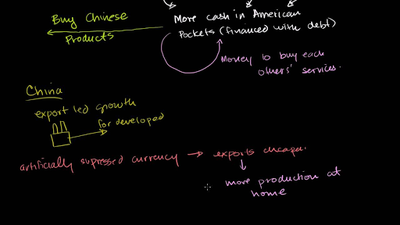 Buy Chinese
Products
More cash in American
Pockets (financed with debt)
Money to buy each
others' services.
China
export led growth
for developed
artificially supressed currency → exports cheaper
more production at
home